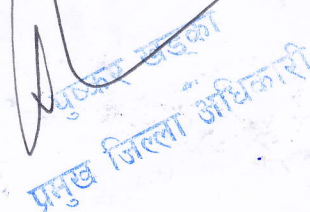 पुष्कर खड्का
प्रमुख जिल्ला अधिकारी